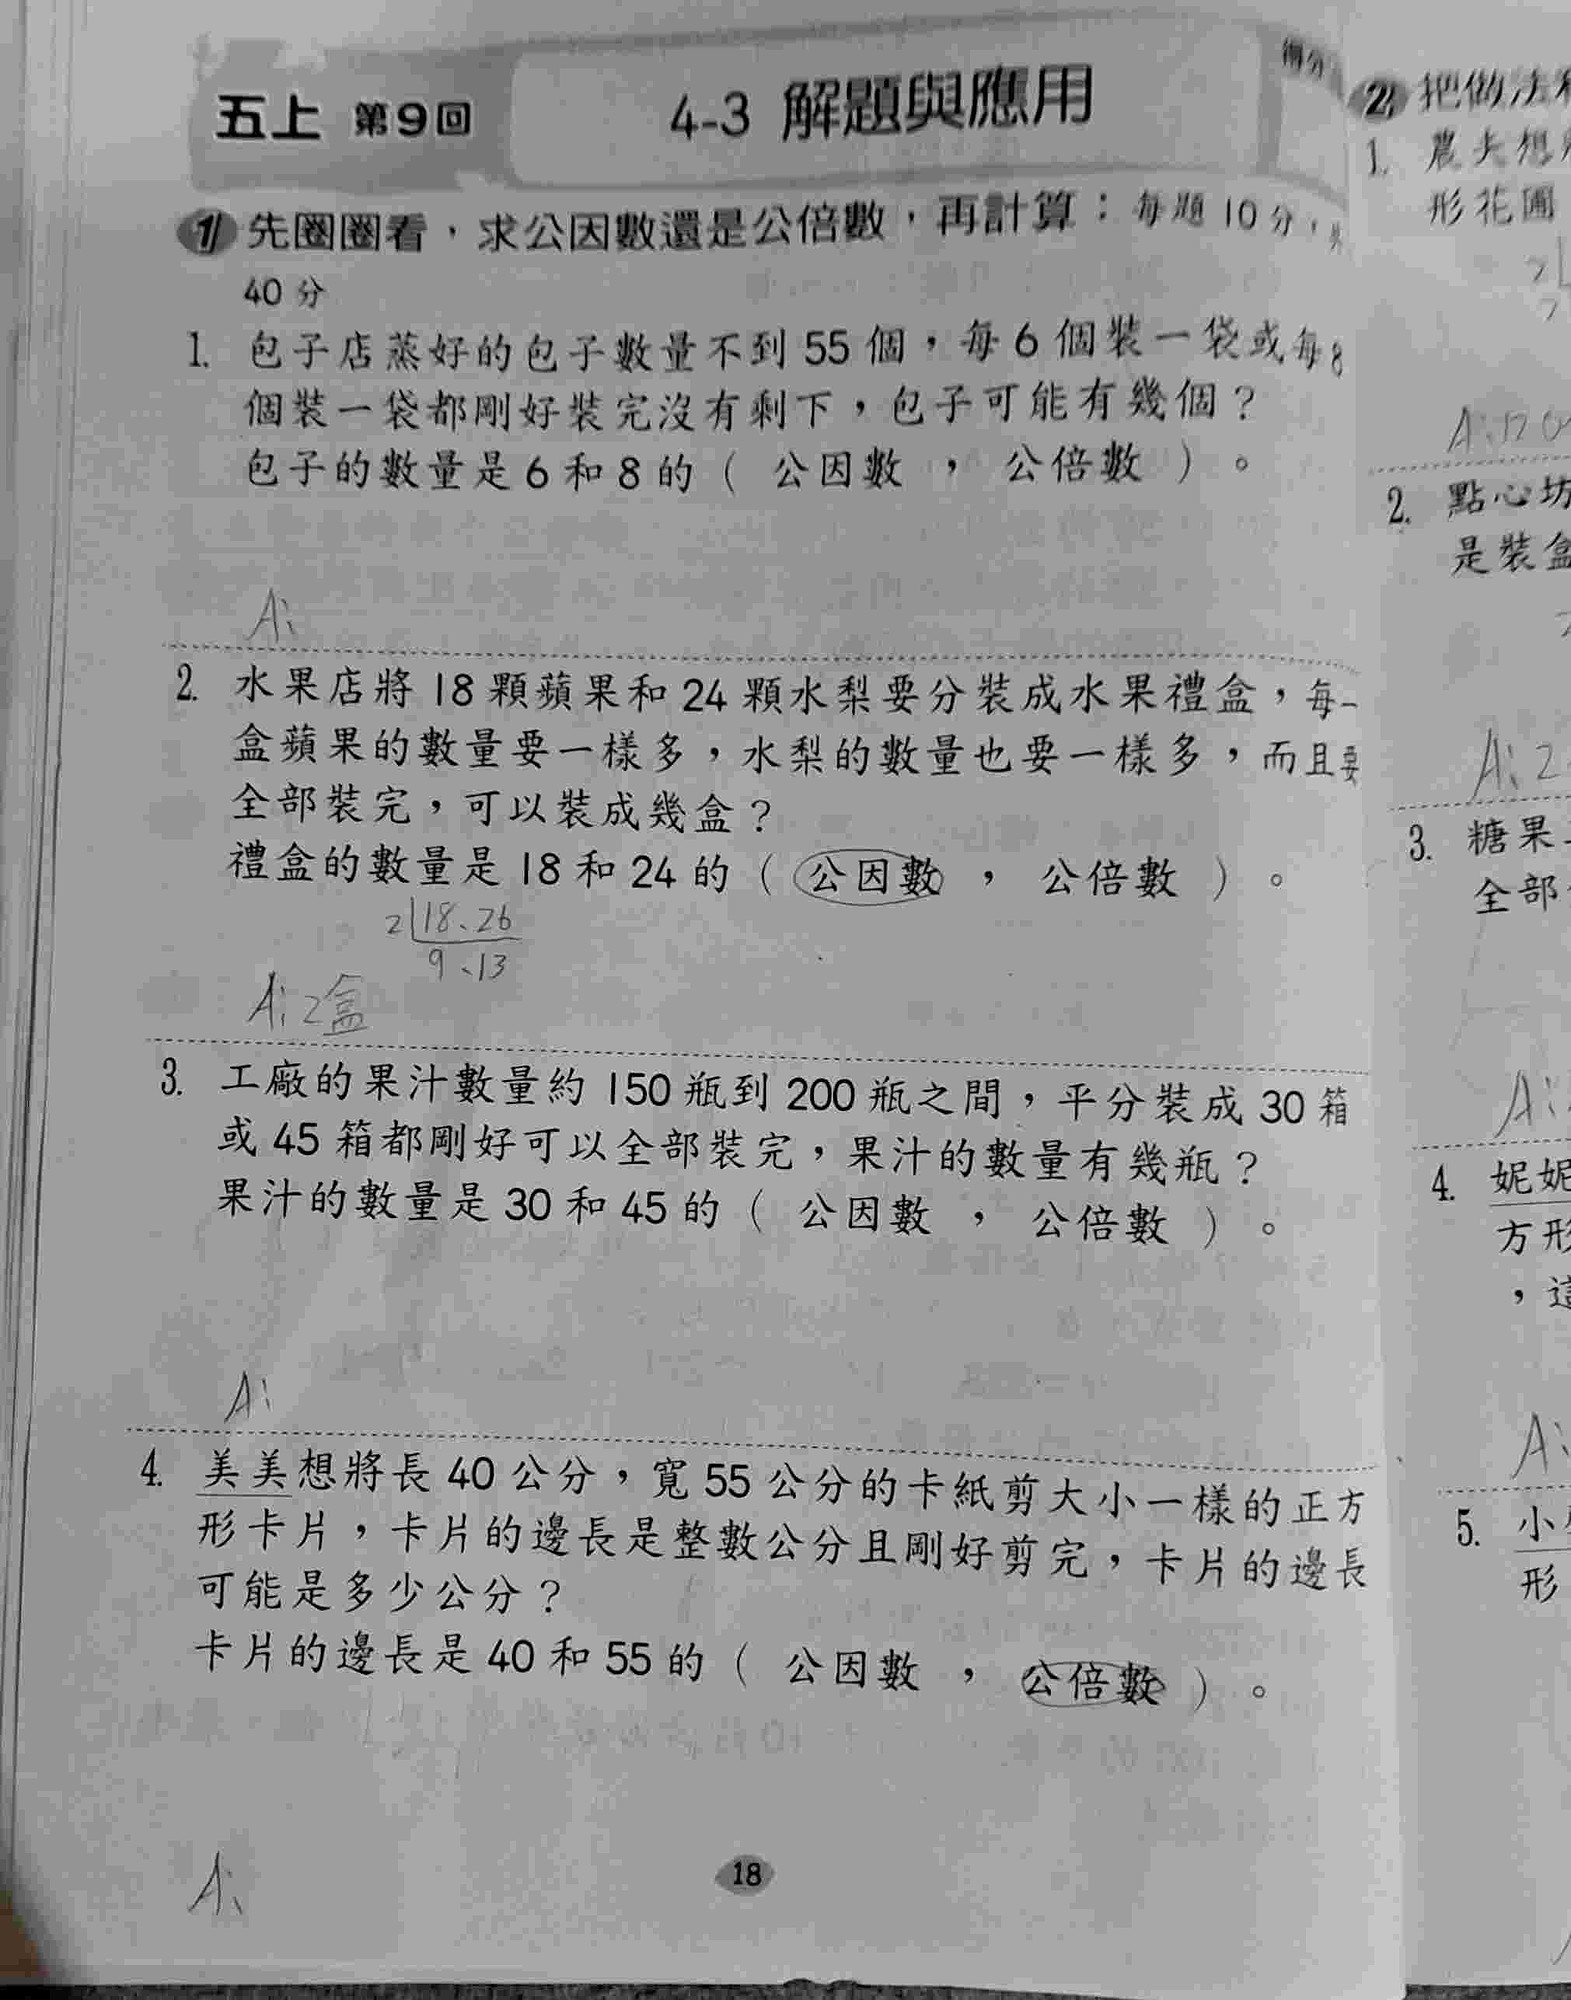 五上 第9回 4-3 解題與應用 得分
1 先圈圈看，求公因數還是公倍數，再計算：每題10分，共
40分
1. 包子店蒸好的包子數量不到55個，每6個裝一袋或每8
個裝一袋都剛好裝完沒有剩下，包子可能有幾個？
包子的數量是6和8的（ 公因數 ， 公倍數 ）。
A:
2. 水果店將18顆蘋果和24顆水梨要分裝成水果禮盒，每一
盒蘋果的數量要一樣多，水梨的數量也要一樣多，而且要
全部裝完，可以裝成幾盒？
禮盒的數量是18和24的（ 公因數 ， 公倍數 ）。
2 18、26
9、13
A:2盒
3. 工廠的果汁數量約150瓶到200瓶之間，平分裝成30箱
或45箱都剛好可以全部裝完，果汁的數量有幾瓶？
果汁的數量是30和45的（ 公因數 ， 公倍數 ）。
A:
4. 美美想將長40公分，寬55公分的卡紙剪大小一樣的正方
形卡片，卡片的邊長是整數公分且剛好剪完，卡片的邊長
可能是多少公分？
卡片的邊長是40和55的（ 公因數 ， 公倍數 ）。
A:
18
2 把做法
1. 農夫想
形花圃
A:120
2. 點心坊
是裝盒
A:2
3. 糖果
全部
A:
4. 妮妮
方形
，這
A:
5. 小
形